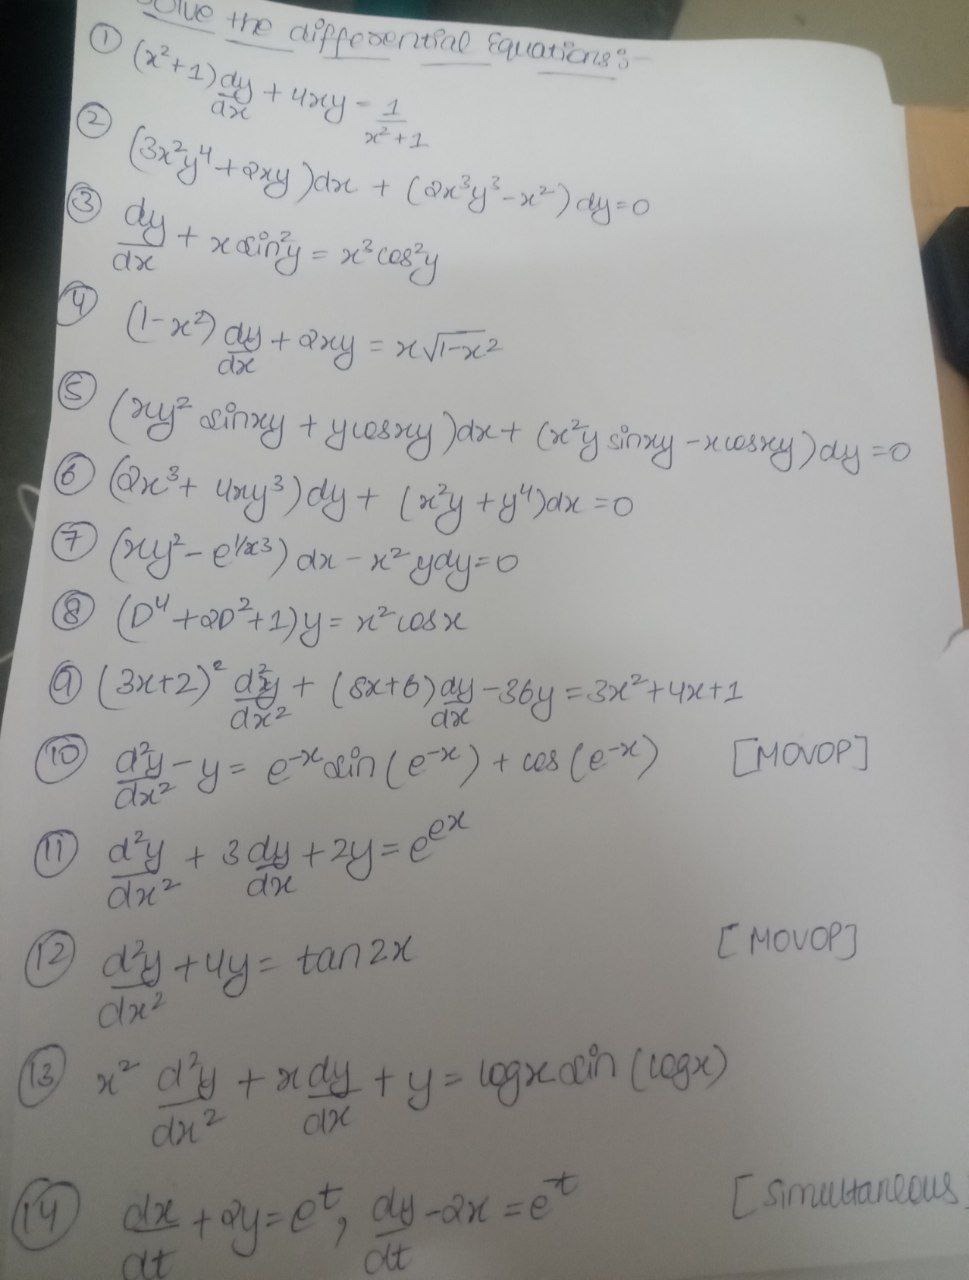 Solve the differential Equations:-
① (x²+1) dy/dx + 4xy = 1/(x²+1)
② (3x²y⁴ + 2xy)dx + (2x³y³ - x²) dy = 0
③ dy/dx + x sin²y = x³ cos²y
④ (1-x²) dy/dx + 2xy = x√(1-x²)
⑤ (xy² sinxy + y cosxy)dx + (x²y sinxy - x cosxy) dy = 0
⑥ (2x³ + 4xy³) dy + (x²y + y⁴)dx = 0
⑦ (xy² - e^(1/x³)) dx - x² y dy = 0
⑧ (D⁴ + 2D² + 1) y = x² cos x
⑨ (3x+2)² d²y/dx² + (5x+6) dy/dx - 36y = 3x² + 4x + 1
⑩ d²y/dx² - y = e^(-x) sin(e^(-x)) + cos(e^(-x)) [MOVOP]
⑪ d²y/dx² + 3 dy/dx + 2y = e^(e^x)
⑫ d²y/dx² + 4y = tan 2x [MOVOP]
⑬ x² d²y/dx² + x dy/dx + y = logx sin(logx)
⑭ dx/dt + 2y = e^t, dy/dt - 2x = e^(-t) [Simultaneous]